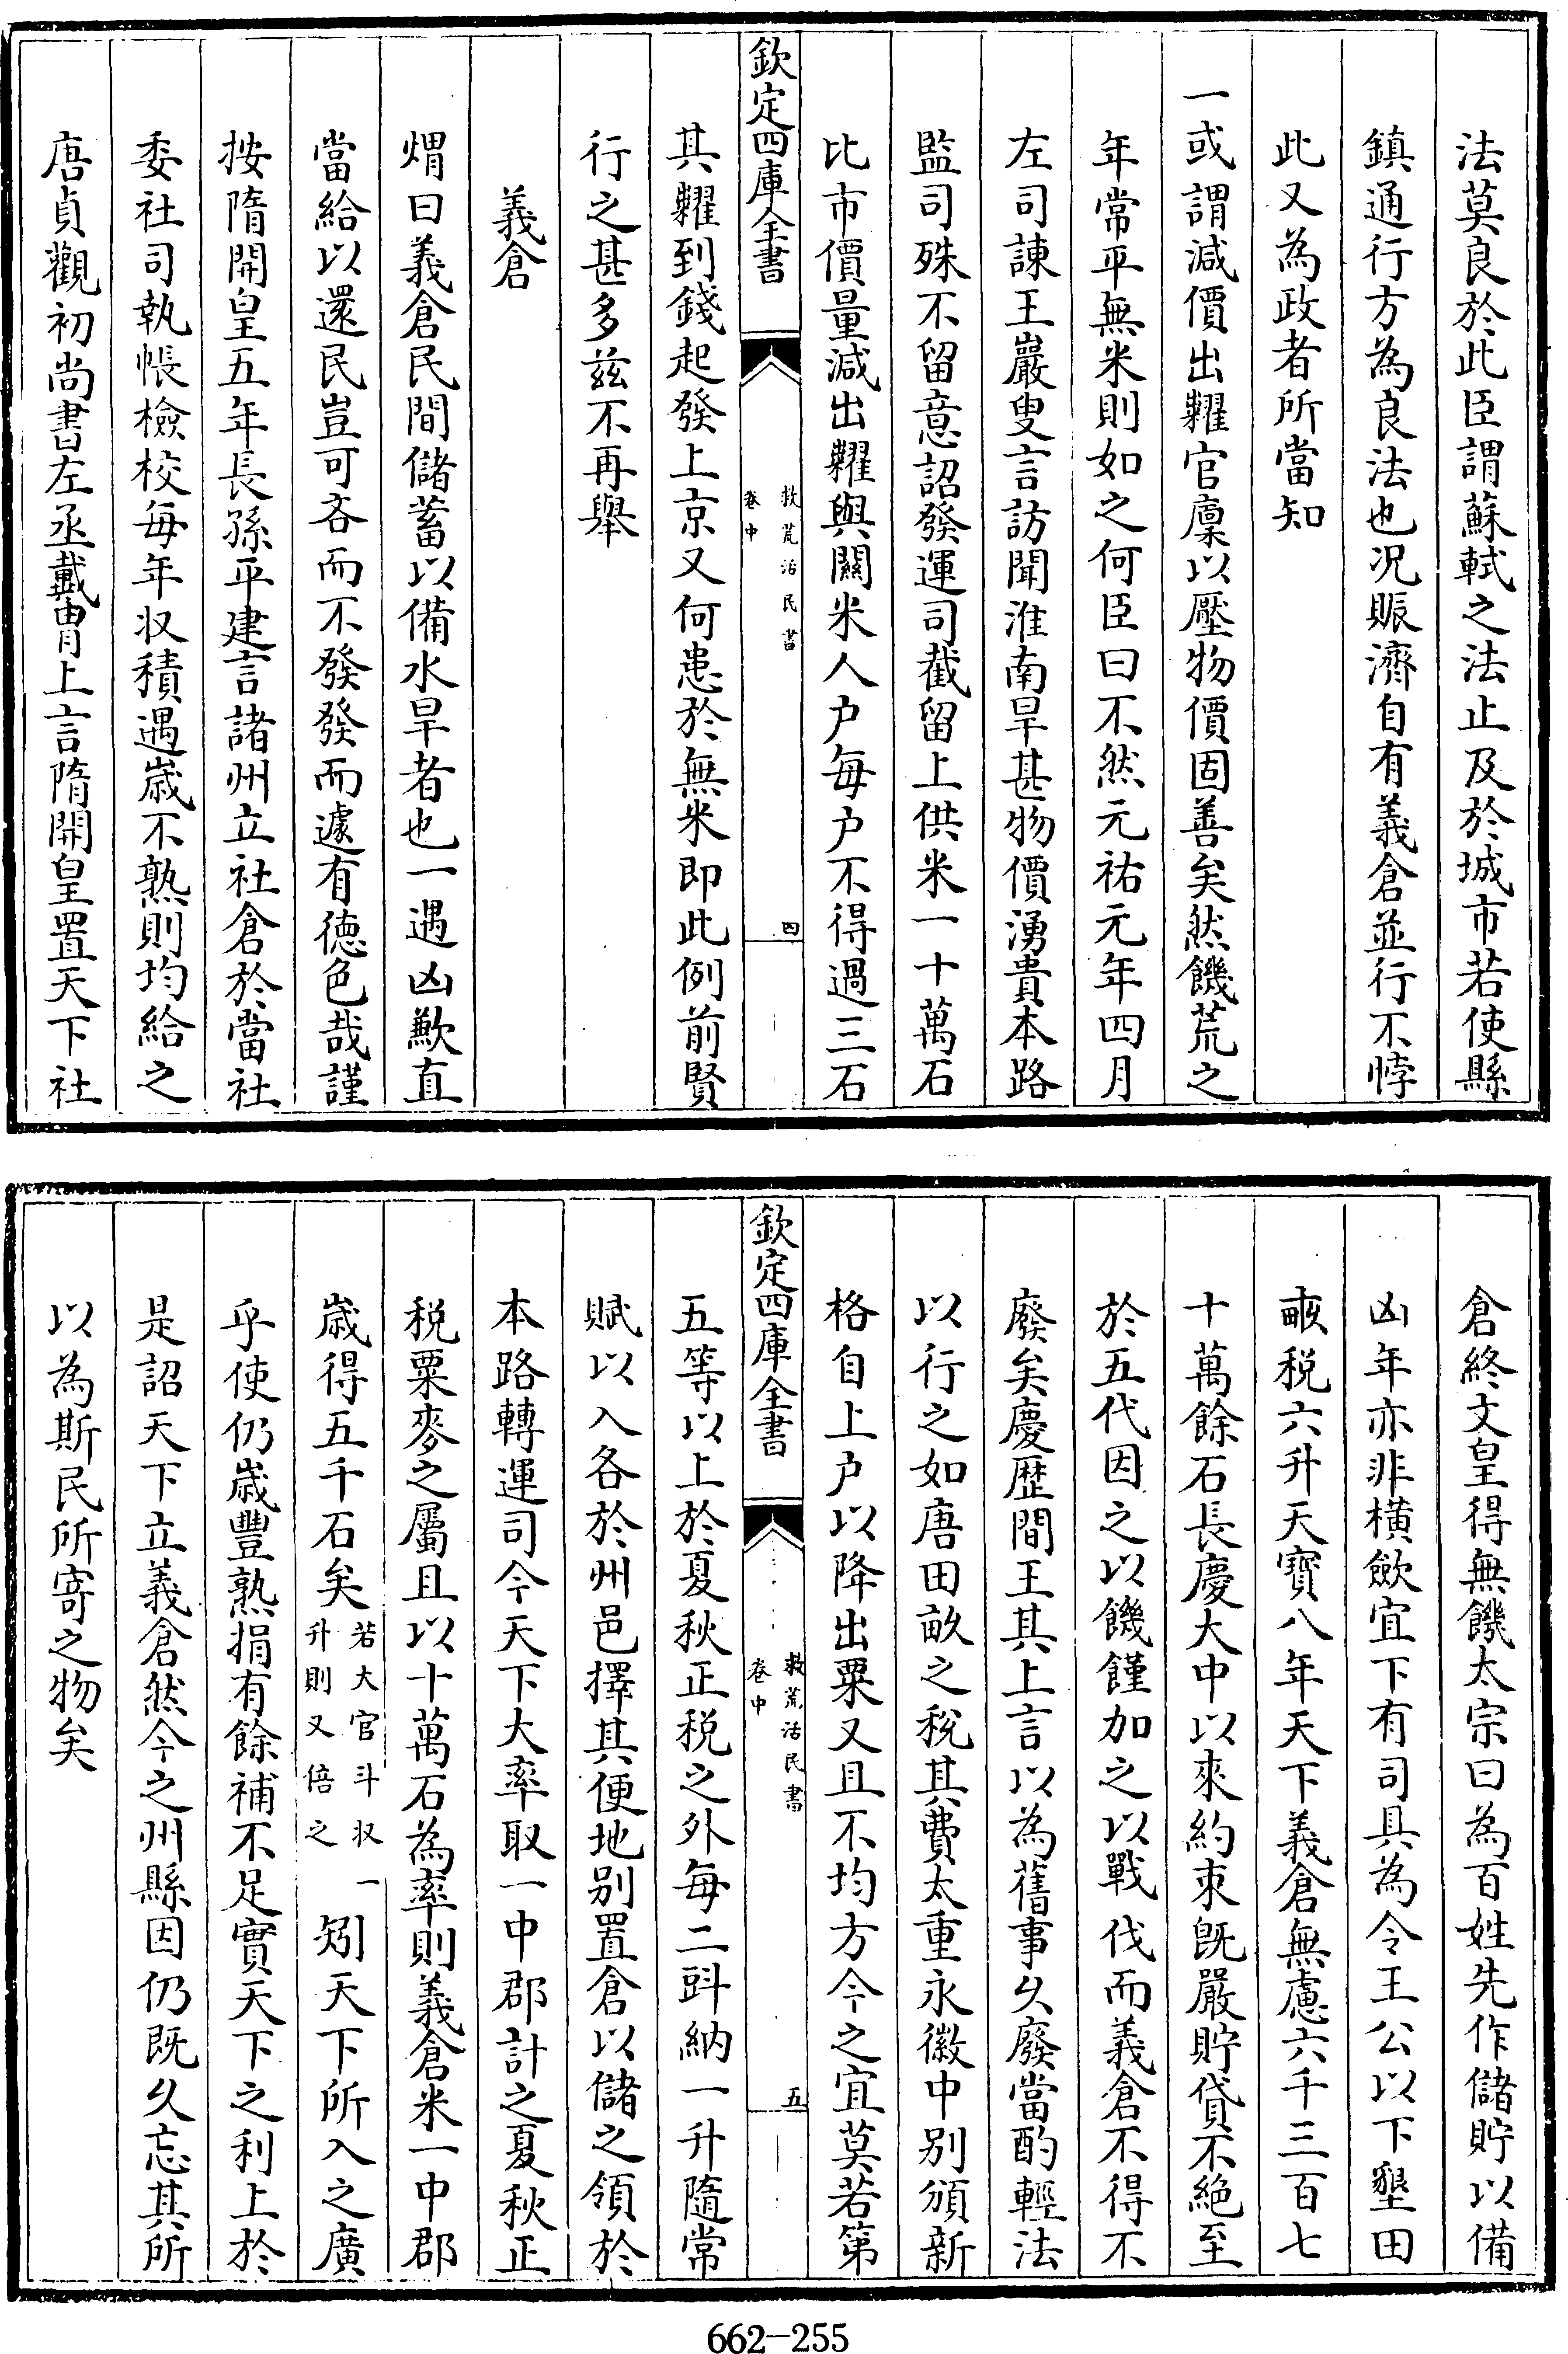 法莫良於此臣謂蘇軾之法止及於城市若使縣
鎮通行方為良法也况賑濟自有義倉並行不悖
此又為政者所當知
一或謂減價出糶官廩以壓物價固善矣然饑荒之
年常平無米則如之何臣曰不然元祐元年四月
左司諫王巖叟言訪聞淮南旱甚物價湧貴本路
監司殊不留意詔發運司截留上供米一十萬石
比市價量減出糶與闕米人户每户不得過三石
欽定四庫全書
救荒活民書
卷中
四
其糶到錢起發上京又何患於無米即此例前賢
行之甚多兹不再舉
義倉
煟曰義倉民間儲蓄以備水旱者也一遇凶歉直
當給以還民豈可吝而不發發而遽有德色哉謹
按隋開皇五年長孫平建言諸州立社倉於當社
委社司執帳檢校每年收積遇歲不熟則均給之
唐貞觀初尚書左丞戴胄上言隋開皇置天下社
倉終文皇得無饑太宗曰為百姓先作儲貯以備
凶年亦非橫歛宜下有司具為令王公以下墾田
畝税六升天寳八年天下義倉無慮六千三百七
十萬餘石長慶大中以來約束既嚴貯貸不絶至
於五代因之以饑饉加之以戰伐而義倉不得不
廢矣慶歴間王其上言以為舊事久廢當酌輕法
以行之如唐田畝之税其費太重永徽中别頒新
格自上户以降出粟又且不均方今之宜莫若第
欽定四庫全書
救荒活民書
卷中
五
五等以上於夏秋正税之外每二㪷納一升隨常
賦以入各於州邑擇其便地别置倉以儲之領於
本路轉運司今天下大率取一中郡計之夏秋正
税粟麥之屬且以十萬石為率則義倉米一中郡
歲得五千石矣若大官斗收一升則又倍之矧天下所入之廣
乎使仍歲豐熟捐有餘補不足實天下之利上於
是詔天下立義倉然今之州縣因仍既久忘其所
以為斯民所寄之物矣
662-255